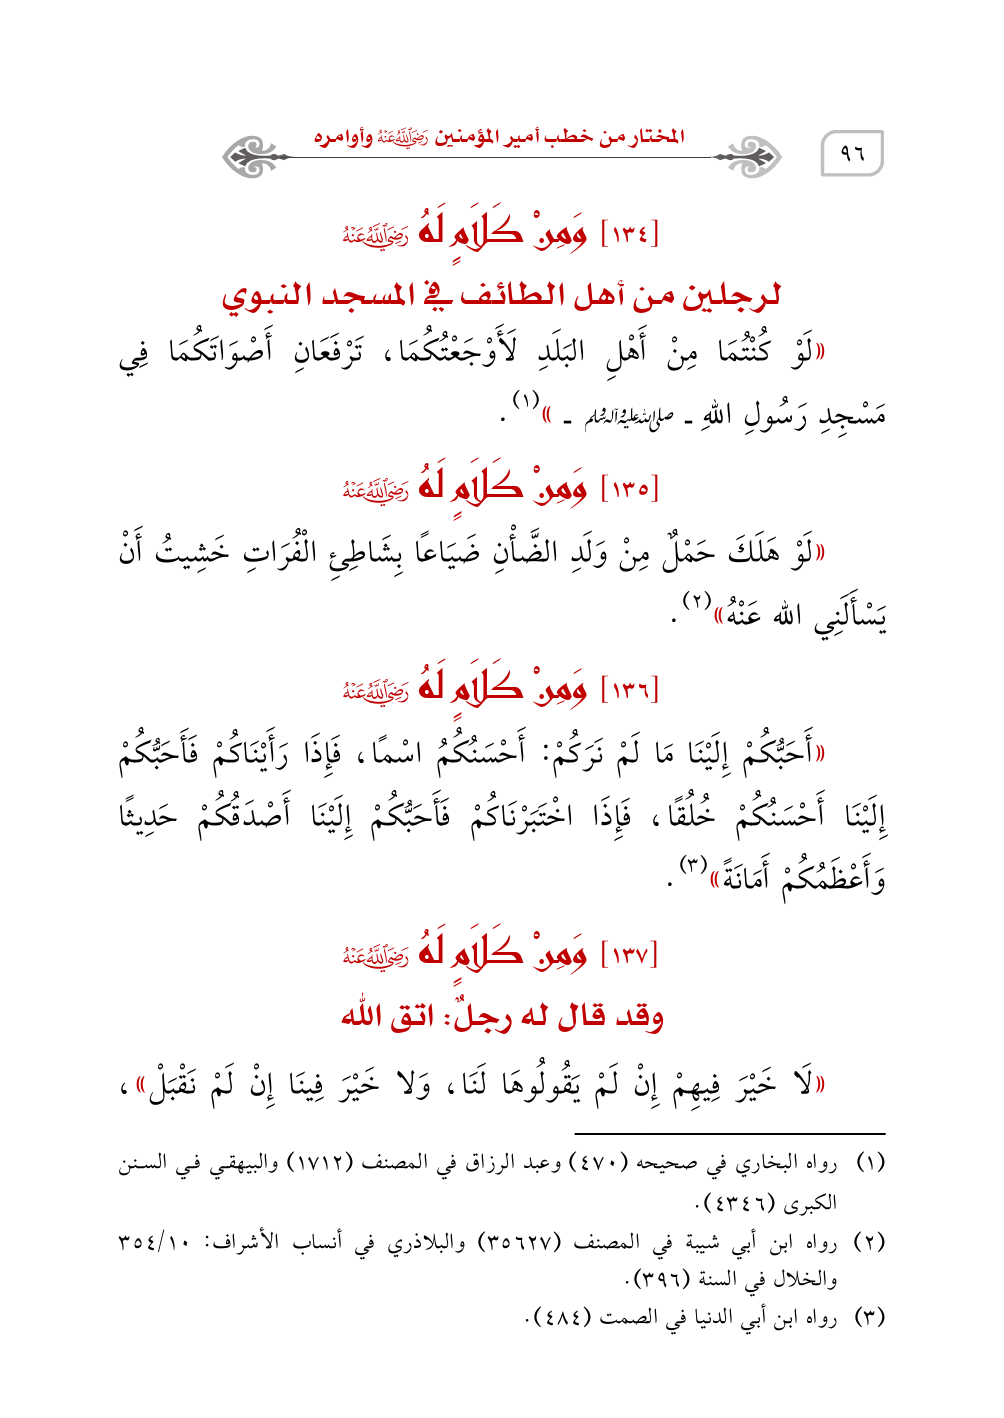 المختار من خطب أمير المؤمنين رَضِيَ اللَّهُ عَنْهُ وأوامره
٩٦
[١٣٤] وَمِنْ كَلَامٍ لَهُ رَضِيَ اللَّهُ عَنْهُ
لرجلين من أهل الطائف في المسجد النبوي
«لَوْ كُنْتُمَا مِنْ أَهْلِ البَلَدِ لَأَوْجَعْتُكُمَا، تَرْفَعَانِ أَصْوَاتَكُمَا فِي
مَسْجِدِ رَسُولِ اللهِ ـ صلى الله عليه وآله وسلم ـ »(١).
[١٣٥] وَمِنْ كَلَامٍ لَهُ رَضِيَ اللَّهُ عَنْهُ
«لَوْ هَلَكَ حَمْلٌ مِنْ وَلَدِ الضَّأْنِ ضَيَاعًا بِشَاطِئِ الْفُرَاتِ خَشِيتُ أَنْ
يَسْأَلَنِي الله عَنْهُ»(٢).
[١٣٦] وَمِنْ كَلَامٍ لَهُ رَضِيَ اللَّهُ عَنْهُ
«أَحَبُّكُمْ إِلَيْنَا مَا لَمْ نَرَكُمْ: أَحْسَنُكُمُ اسْمًا، فَإِذَا رَأَيْنَاكُمْ فَأَحَبُّكُمْ
إِلَيْنَا أَحْسَنُكُمْ خُلُقًا، فَإِذَا اخْتَبَرْنَاكُمْ فَأَحَبُّكُمْ إِلَيْنَا أَصْدَقُكُمْ حَدِيثًا
وَأَعْظَمُكُمْ أَمَانَةً»(٣).
[١٣٧] وَمِنْ كَلَامٍ لَهُ رَضِيَ اللَّهُ عَنْهُ
وقد قال له رجلٌ: اتق الله
«لَا خَيْرَ فِيهِمْ إِنْ لَمْ يَقُولُوهَا لَنَا، وَلا خَيْرَ فِينَا إِنْ لَمْ نَقْبَلْ»،
(١) رواه البخاري في صحيحه (٤٧٠) وعبد الرزاق في المصنف (١٧١٢) والبيهقي في السنن
الكبرى (٤٣٤٦).
(٢) رواه ابن أبي شيبة في المصنف (٣٥٦٢٧) والبلاذري في أنساب الأشراف: ٣٥٤/١٠
والخلال في السنة (٣٩٦).
(٣) رواه ابن أبي الدنيا في الصمت (٤٨٤).